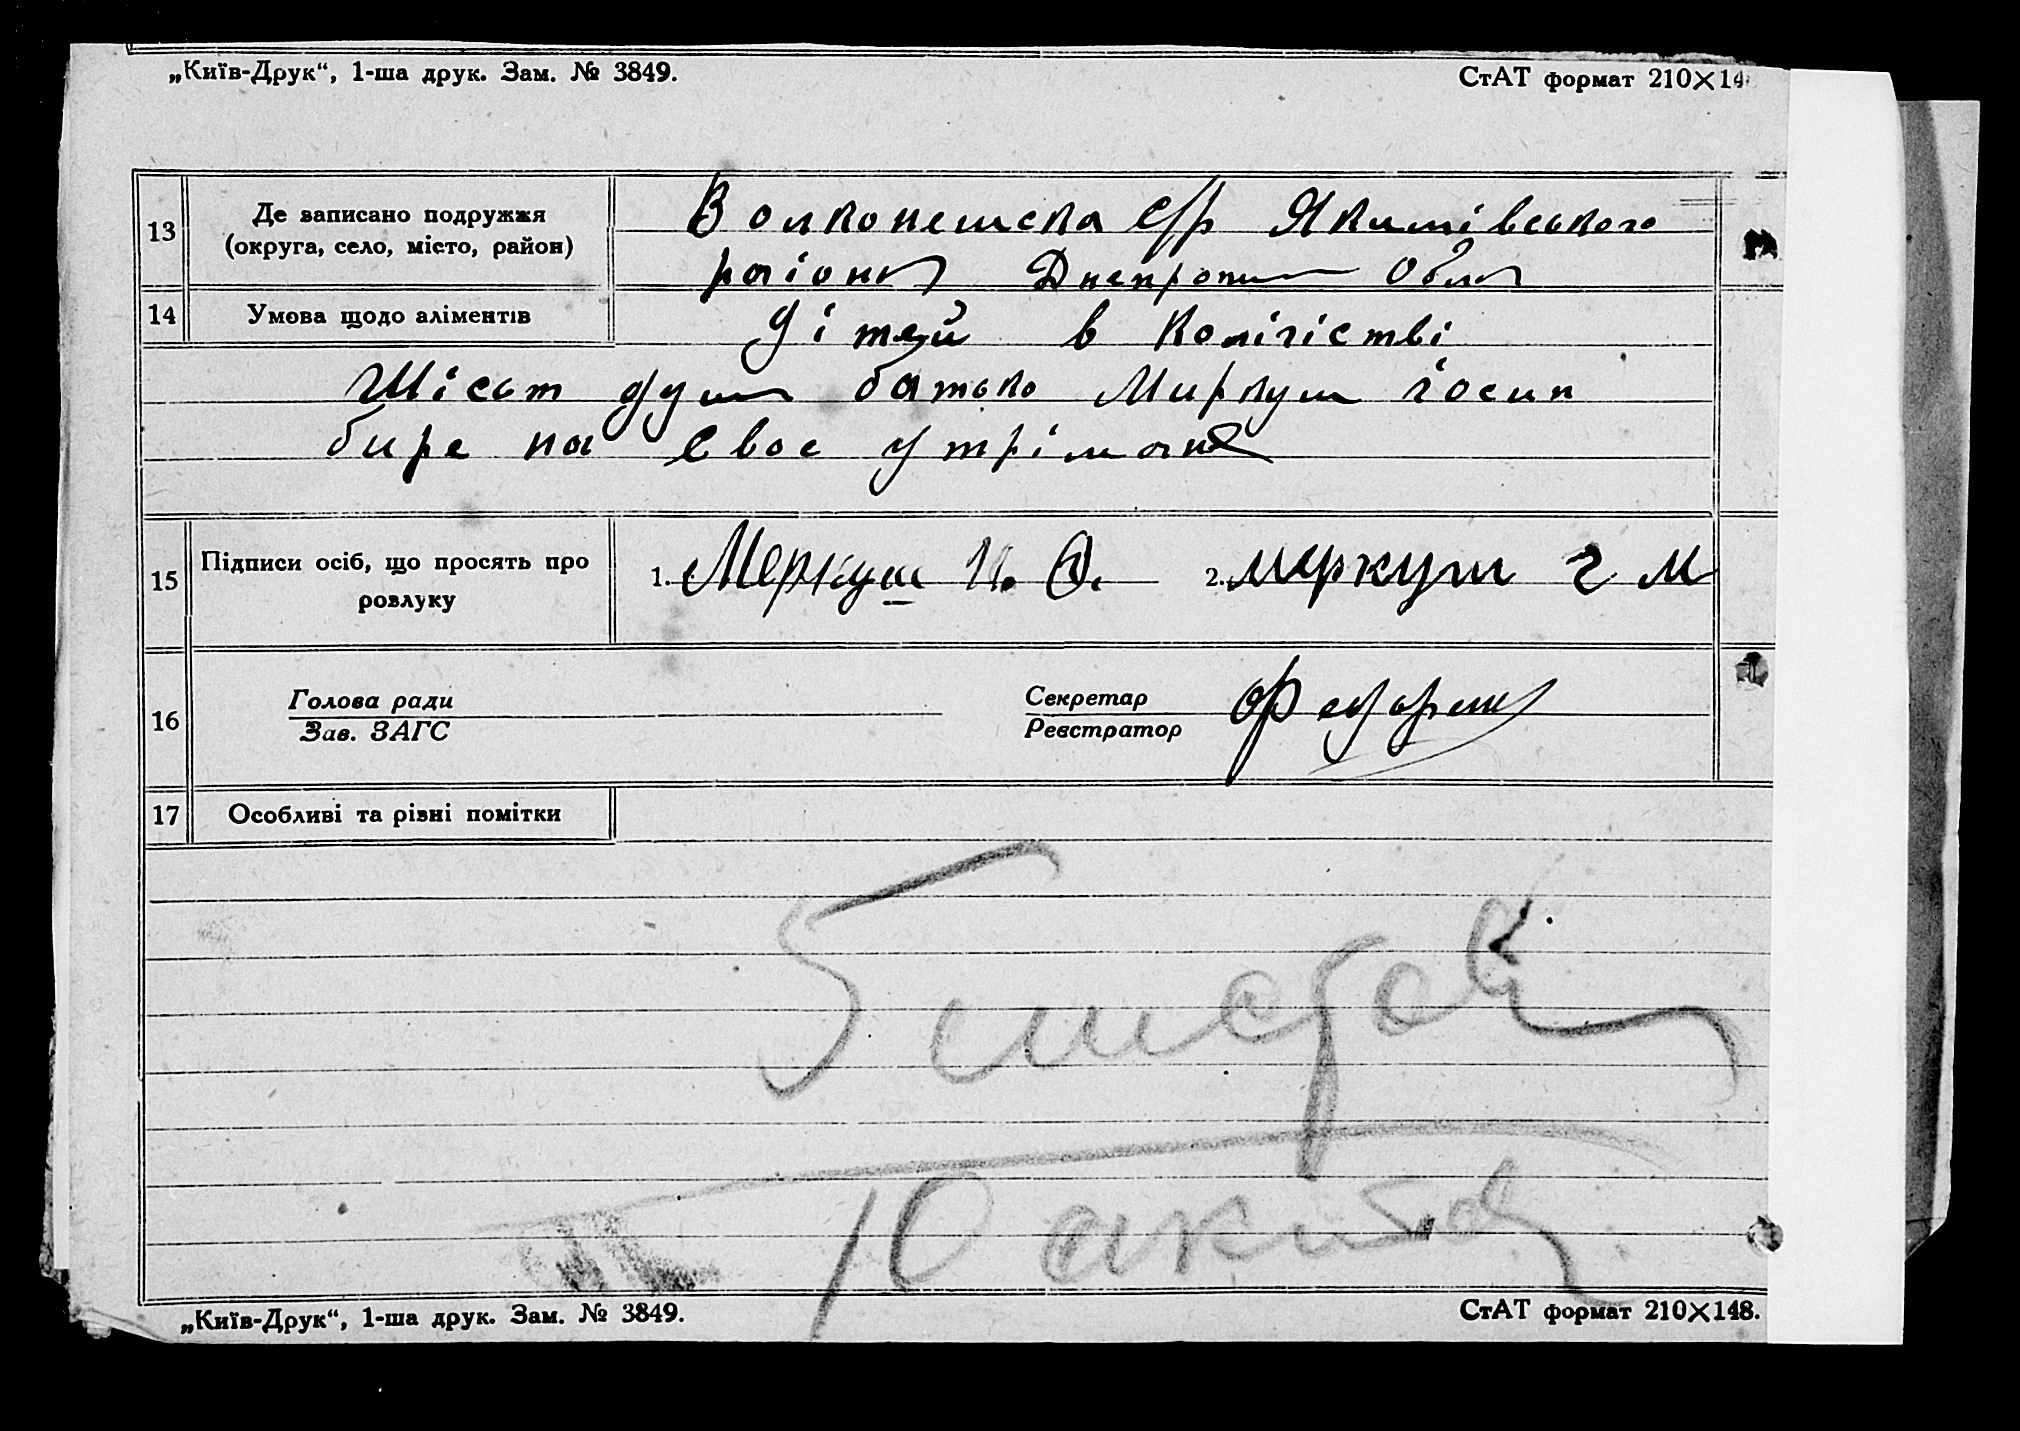 „Київ-Друк“, 1-ша друк. Зам. № 3849.
СтАТ формат 210×14
13
Де записано подружжя
(округа, село, місто, район)
Волконешска с/р Якимівського
раіону Днепропет Обла
14
Умова щодо аліментів
Дітей в колігістві
Шість душ батько Миркуш іосип
бире на своє утріманя
15
Підписи осіб, що просять про
розлуку
1. Меркуш И. О.
2. меркуш г м
16
Голова ради
Зав. ЗАГС
Секретар
Реєстратор
17
Особливі та різні помітки
„Київ-Друк“, 1-ша друк. Зам. № 3849.
СтАТ формат 210×148.